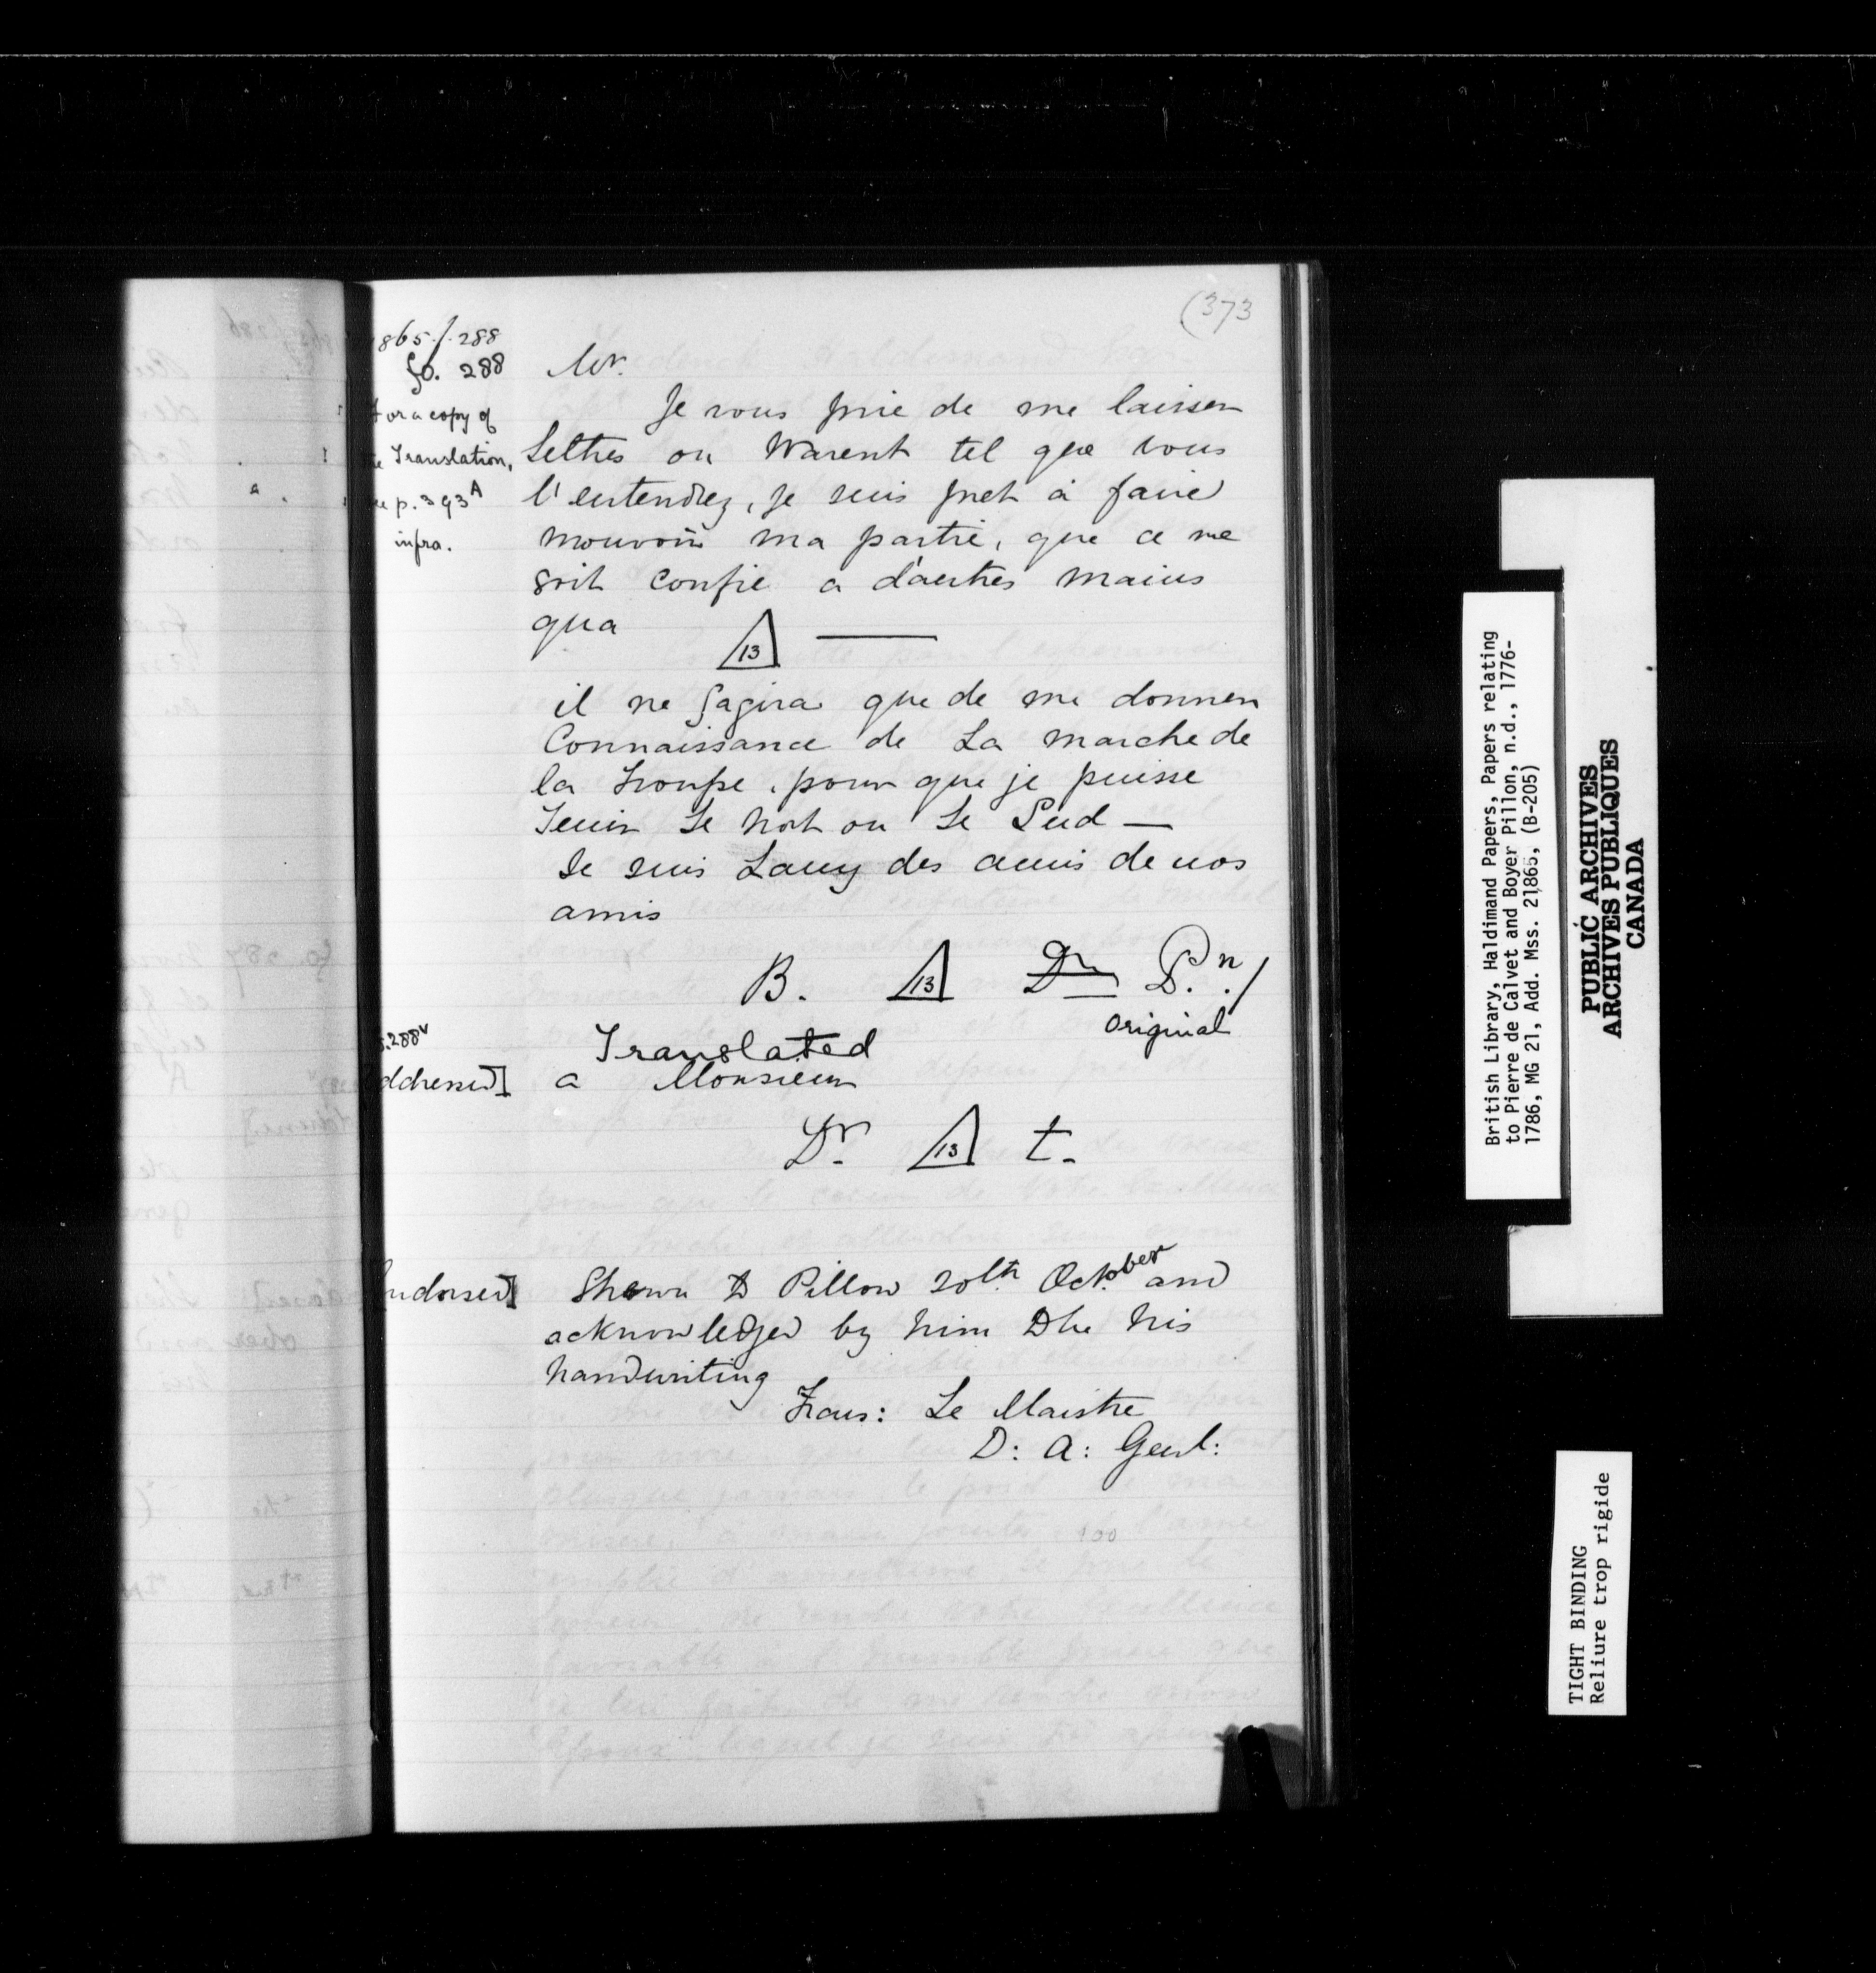 (373
865. f. 288
fo. 288
Mr.
For a copy of
Translation,
p. 393A
infra.
Je vous prie de me laisser
Lettres ou Warent tel que vous
l'entendrez, Je suis pret à faire
mouvoir ma partie, que ce me
soit confie a d'autres mains
qua
13
il ne Sagira que de me donner
Connaissance de La marche de
la troupe, pour que je puisse
Tenir Le Nort ou Le Sud —
Je suis Lamy des amis de nos
amis
B. 13 Dr P.n./
original
288v
Translated
ddressed] a Monsieur
Dr. 13 t.
ndorsed] Shown to Pillon 20th October and
acknowledged by him to be his
handwriting
Frans: Le Maistre
D: A: Genl:
100
British Library, Haldimand Papers, Papers relating
to Pierre de Calvet and Boyer Pillon, n.d., 1776-
1786, MG 21, Add. Mss. 21865, (B-205)
PUBLIC ARCHIVES
ARCHIVES PUBLIQUES
CANADA
TIGHT BINDING
Reliure trop rigide